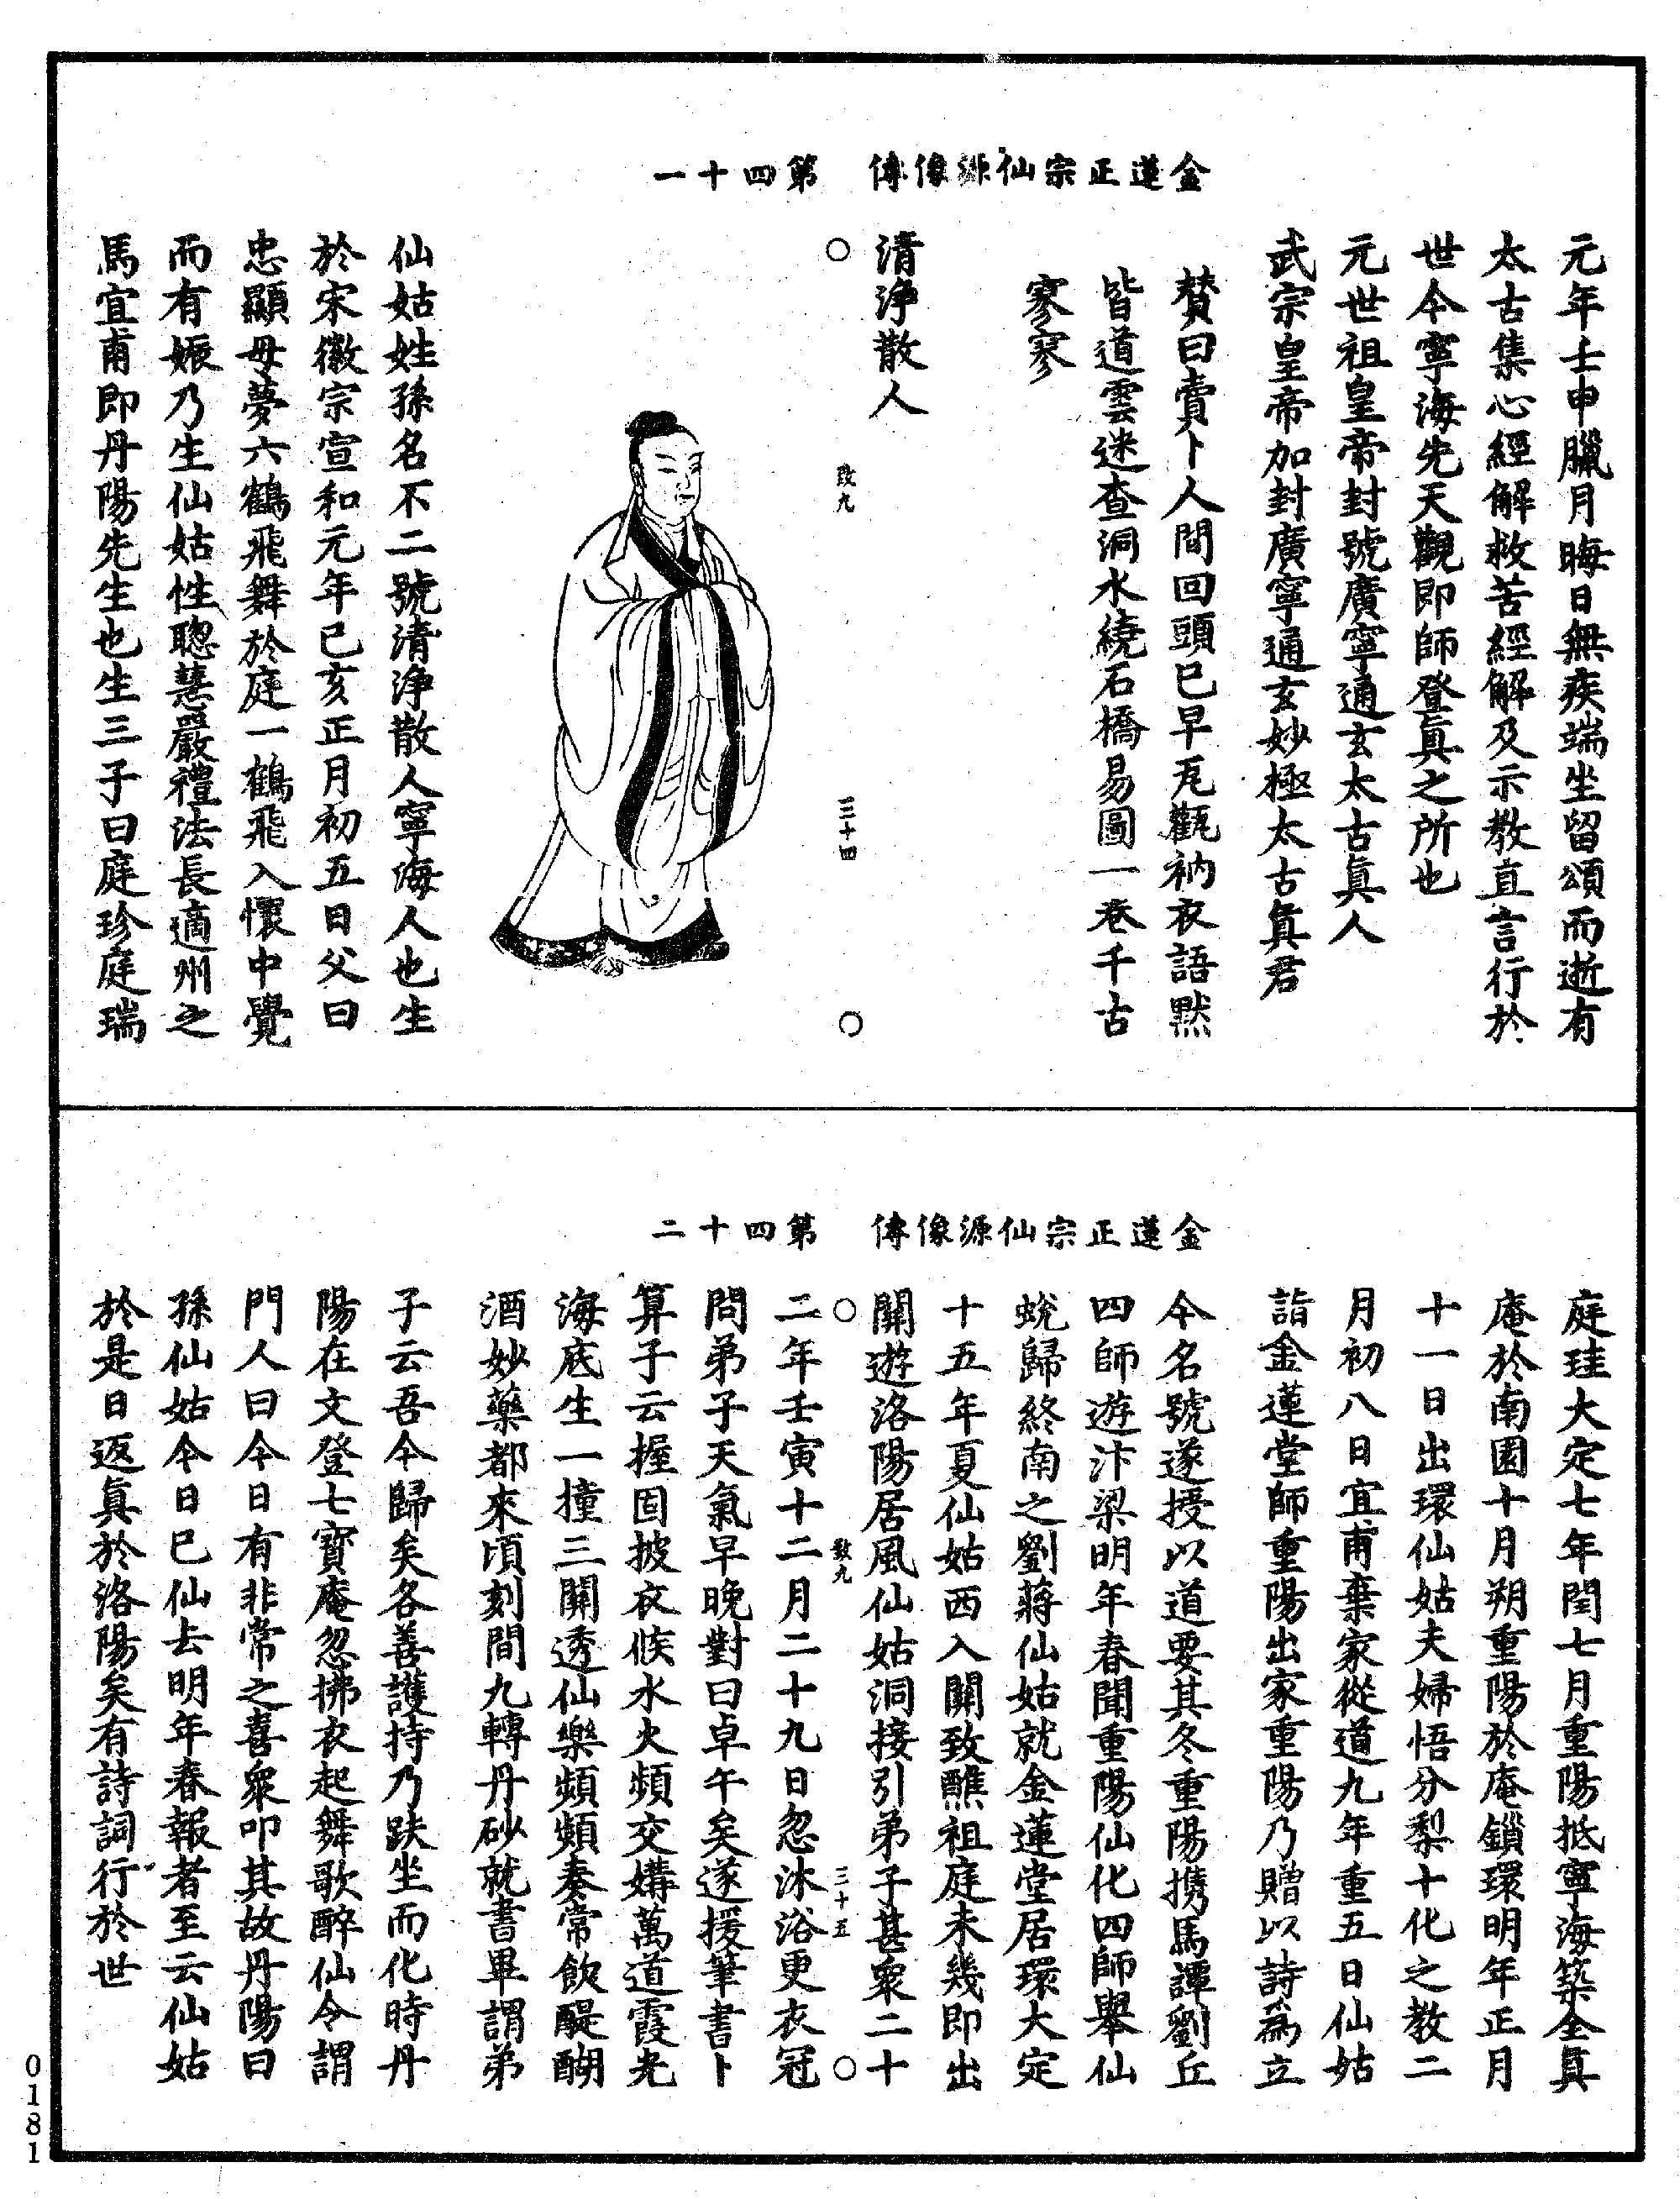 金蓮正宗仙源像傳　第四十一
元年壬申臘月晦日無疾端坐留頌而逝有
太古集心經解救苦經解及示教直言行於
世今寧海先天觀即師登真之所也
元世祖皇帝封號廣寧通玄太古真人
武宗皇帝加封廣寧通玄妙極太古真君
贊曰賣卜人間回頭已早瓦觀衲衣語默
皆道雲迷查洞水繞石橋易圖一卷千古
寥寥
致九
三十四
清淨散人
仙姑姓孫名不二號清淨散人寧海人也生
於宋徽宗宣和元年己亥正月初五日父曰
忠顯母夢六鶴飛舞於庭一鶴飛入懷中覺
而有娠乃生仙姑性聰慧嚴禮法長適州之
馬宜甫即丹陽先生也生三子曰庭珍庭瑞
金蓮正宗仙源像傳　第四十二
庭珪大定七年閏七月重陽抵寧海築全真
庵於南園十月朔重陽於庵鎖環明年正月
十一日出環仙姑夫婦悟分梨十化之教二
月初八日宜甫棄家從道九年重五日仙姑
詣金蓮堂師重陽出家重陽乃贈以詩為立
今名號遂授以道要其冬重陽携馬譚劉丘
四師遊汴梁明年春聞重陽仙化四師舉仙
蛻歸終南之劉蔣仙姑就金蓮堂居環大定
十五年夏仙姑西入關致醮祖庭未幾即出
關遊洛陽居風仙姑洞接引弟子甚眾二十
致九
三十五
二年壬寅十二月二十九日忽沐浴更衣冠
問弟子天氣早晚對曰卓午矣遂援筆書卜
算子云握固披衣候水火頻交媾萬道霞光
海底生一撞三關透仙樂頻頻奏常飲醍醐
酒妙藥都來頃刻間九轉丹砂就書畢謂弟
子云吾今歸矣各善護持乃趺坐而化時丹
陽在文登七寶庵忽拂衣起舞歌醉仙令謂
門人曰今日有非常之喜眾叩其故丹陽曰
孫仙姑今日已仙去明年春報者至云仙姑
於是日返真於洛陽矣有詩詞行於世
0181